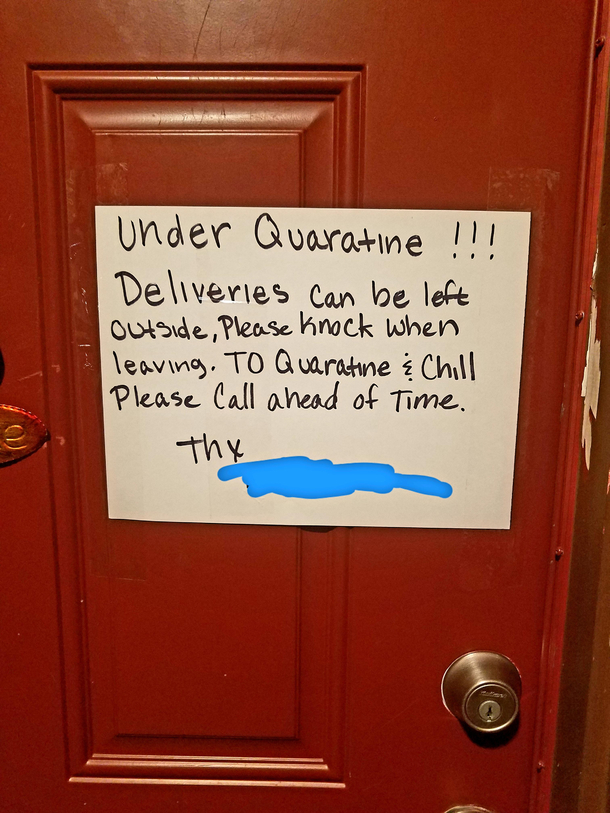 Under Quaratine !!!
Deliveries can be left
outside, Please knock when
leaving. To Quaratine & Chill
Please Call ahead of Time.
Thx
e